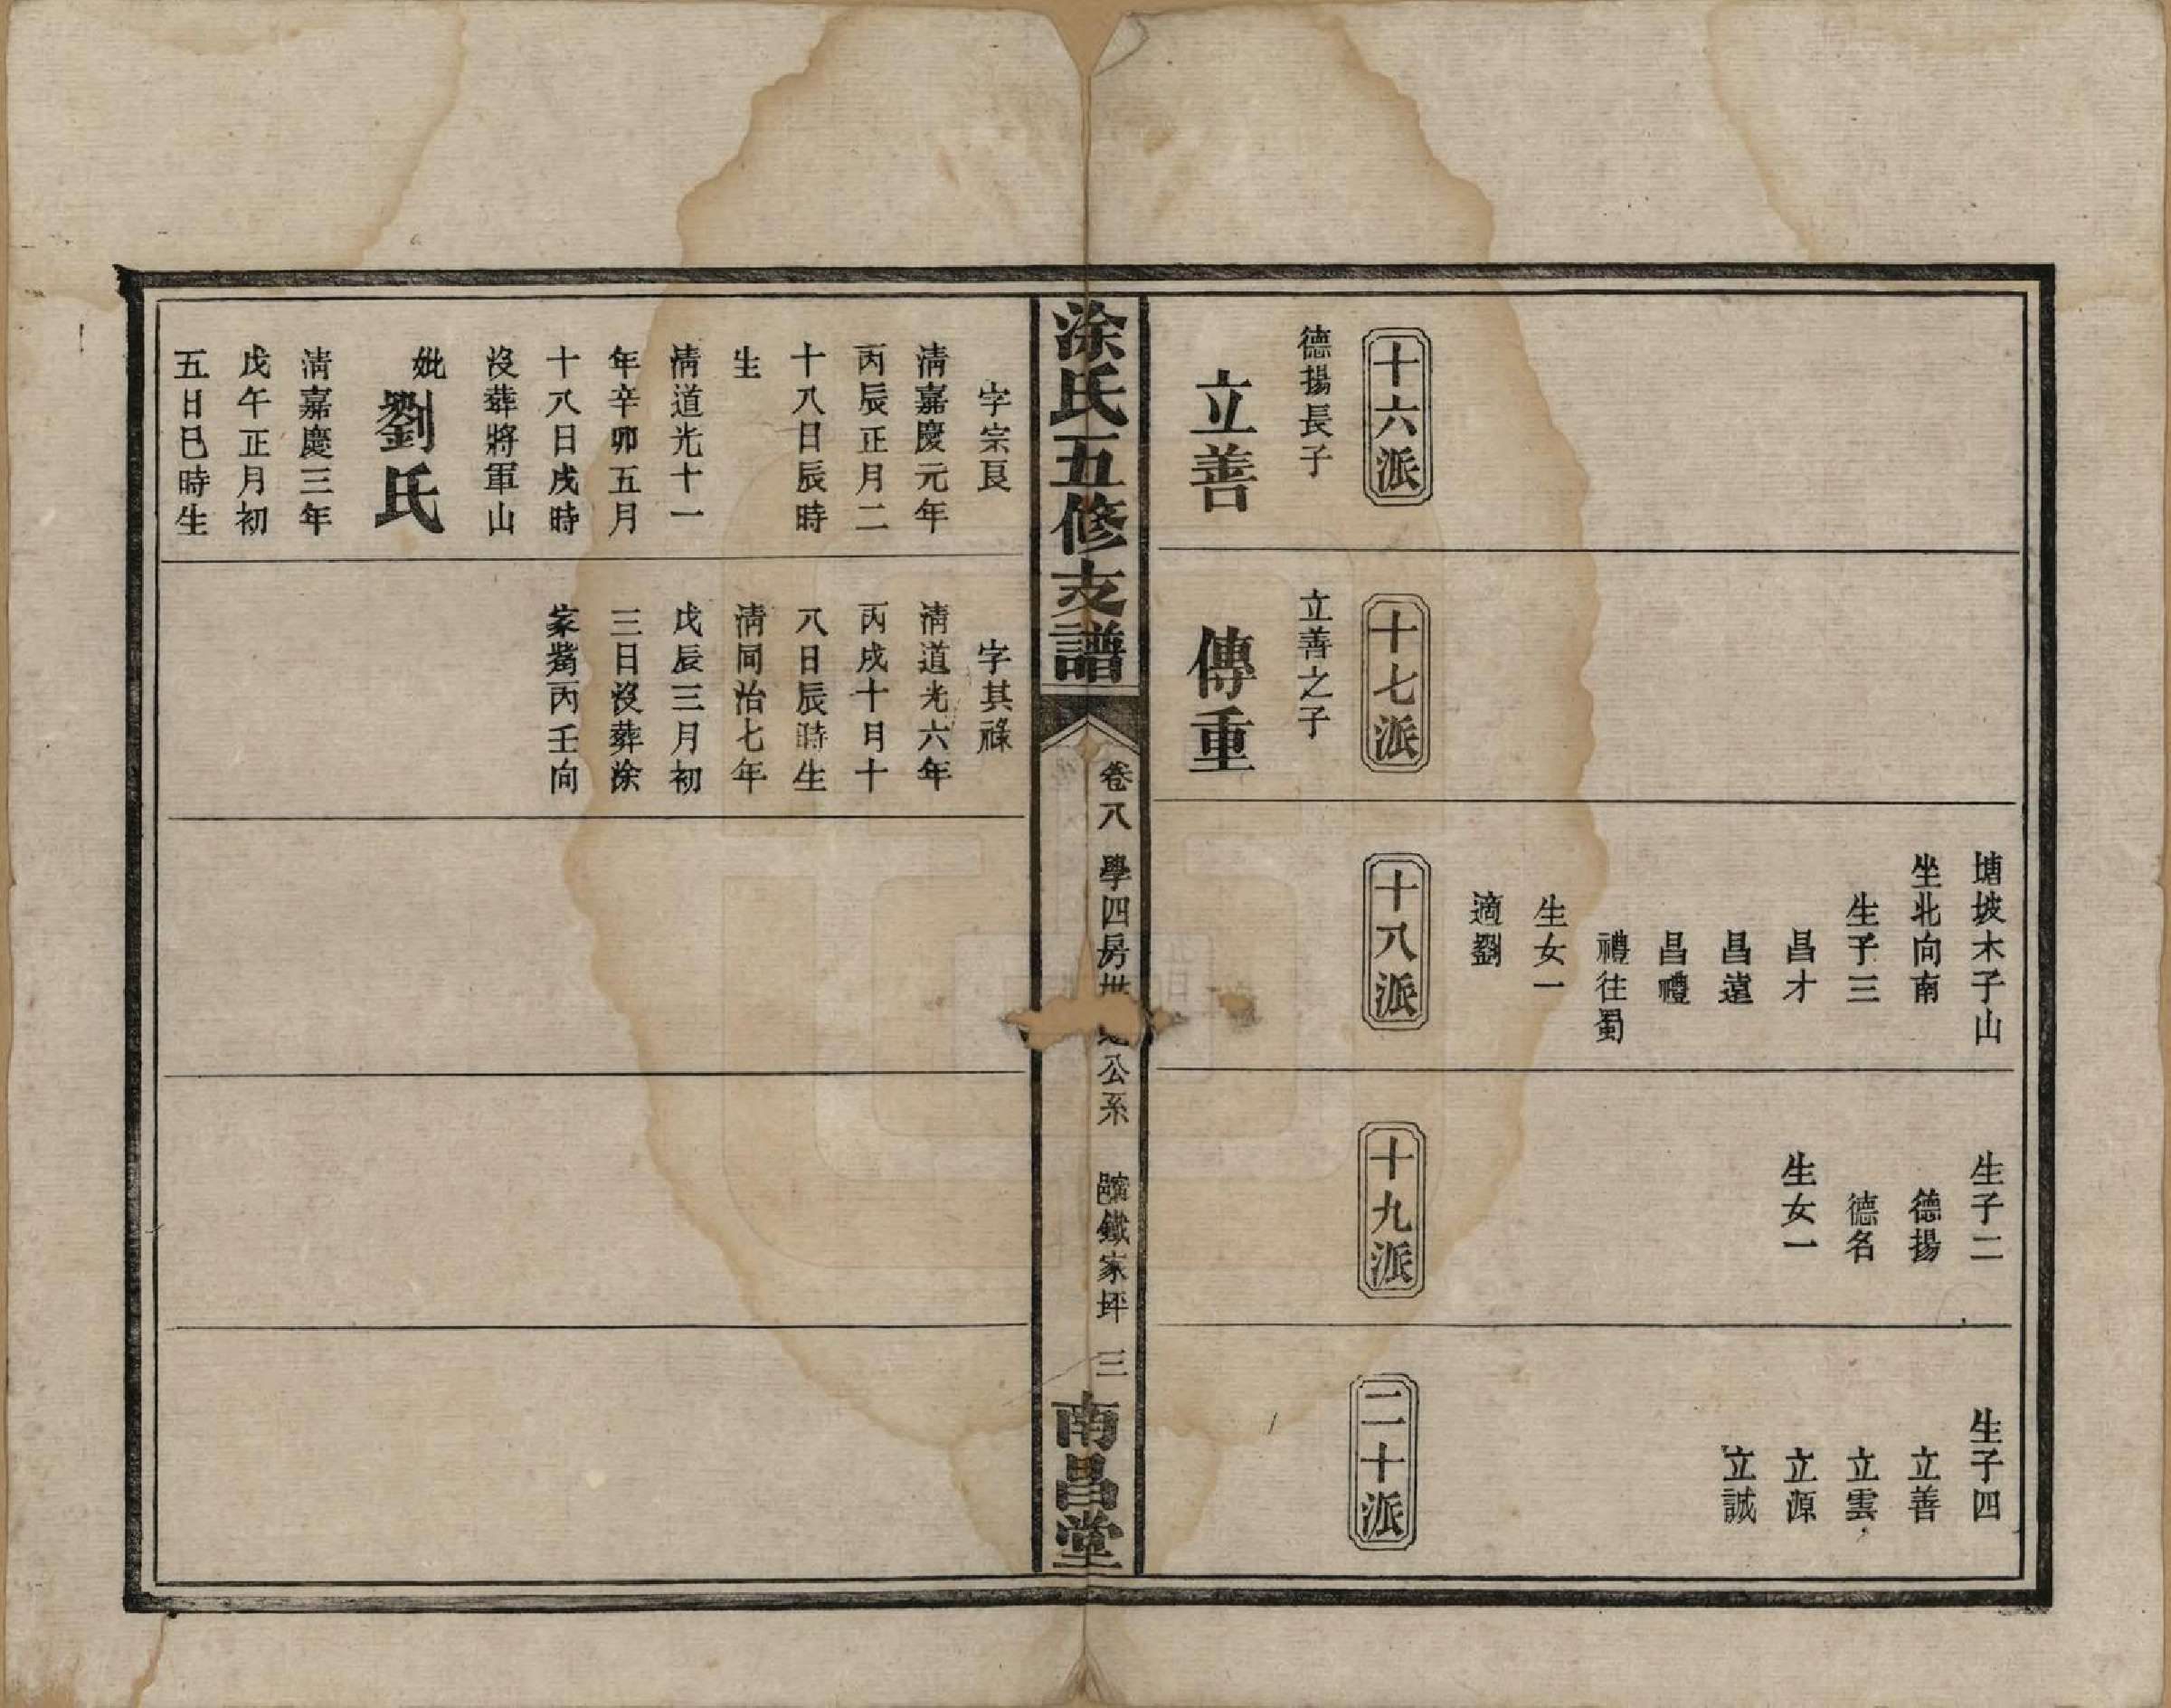 塘坡木子山
坐北向南
生子三
昌才
昌遠
昌禮
禮往蜀
生女一
適劉
生子二
德揚
德名
生女一
生子四
立善
立雲
立源
立誠
十六派
十七派
十八派
十九派
二十派
德揚長子
立善
立善之子
傳重
涂氏五修支譜
卷八
學四房
公系
鐵家坪
三
南昌堂
字宗良
淸嘉慶元年
丙辰正月二
十八日辰時
生
淸道光十一
年辛卯五月
十八日戌時
沒葬將軍山
妣
劉氏
淸嘉慶三年
戊午正月初
五日巳時生
字其祿
淸道光六年
丙戌十月十
八日辰時生
淸同治七年
戊辰三月初
三日沒葬涂
家嘴丙壬向